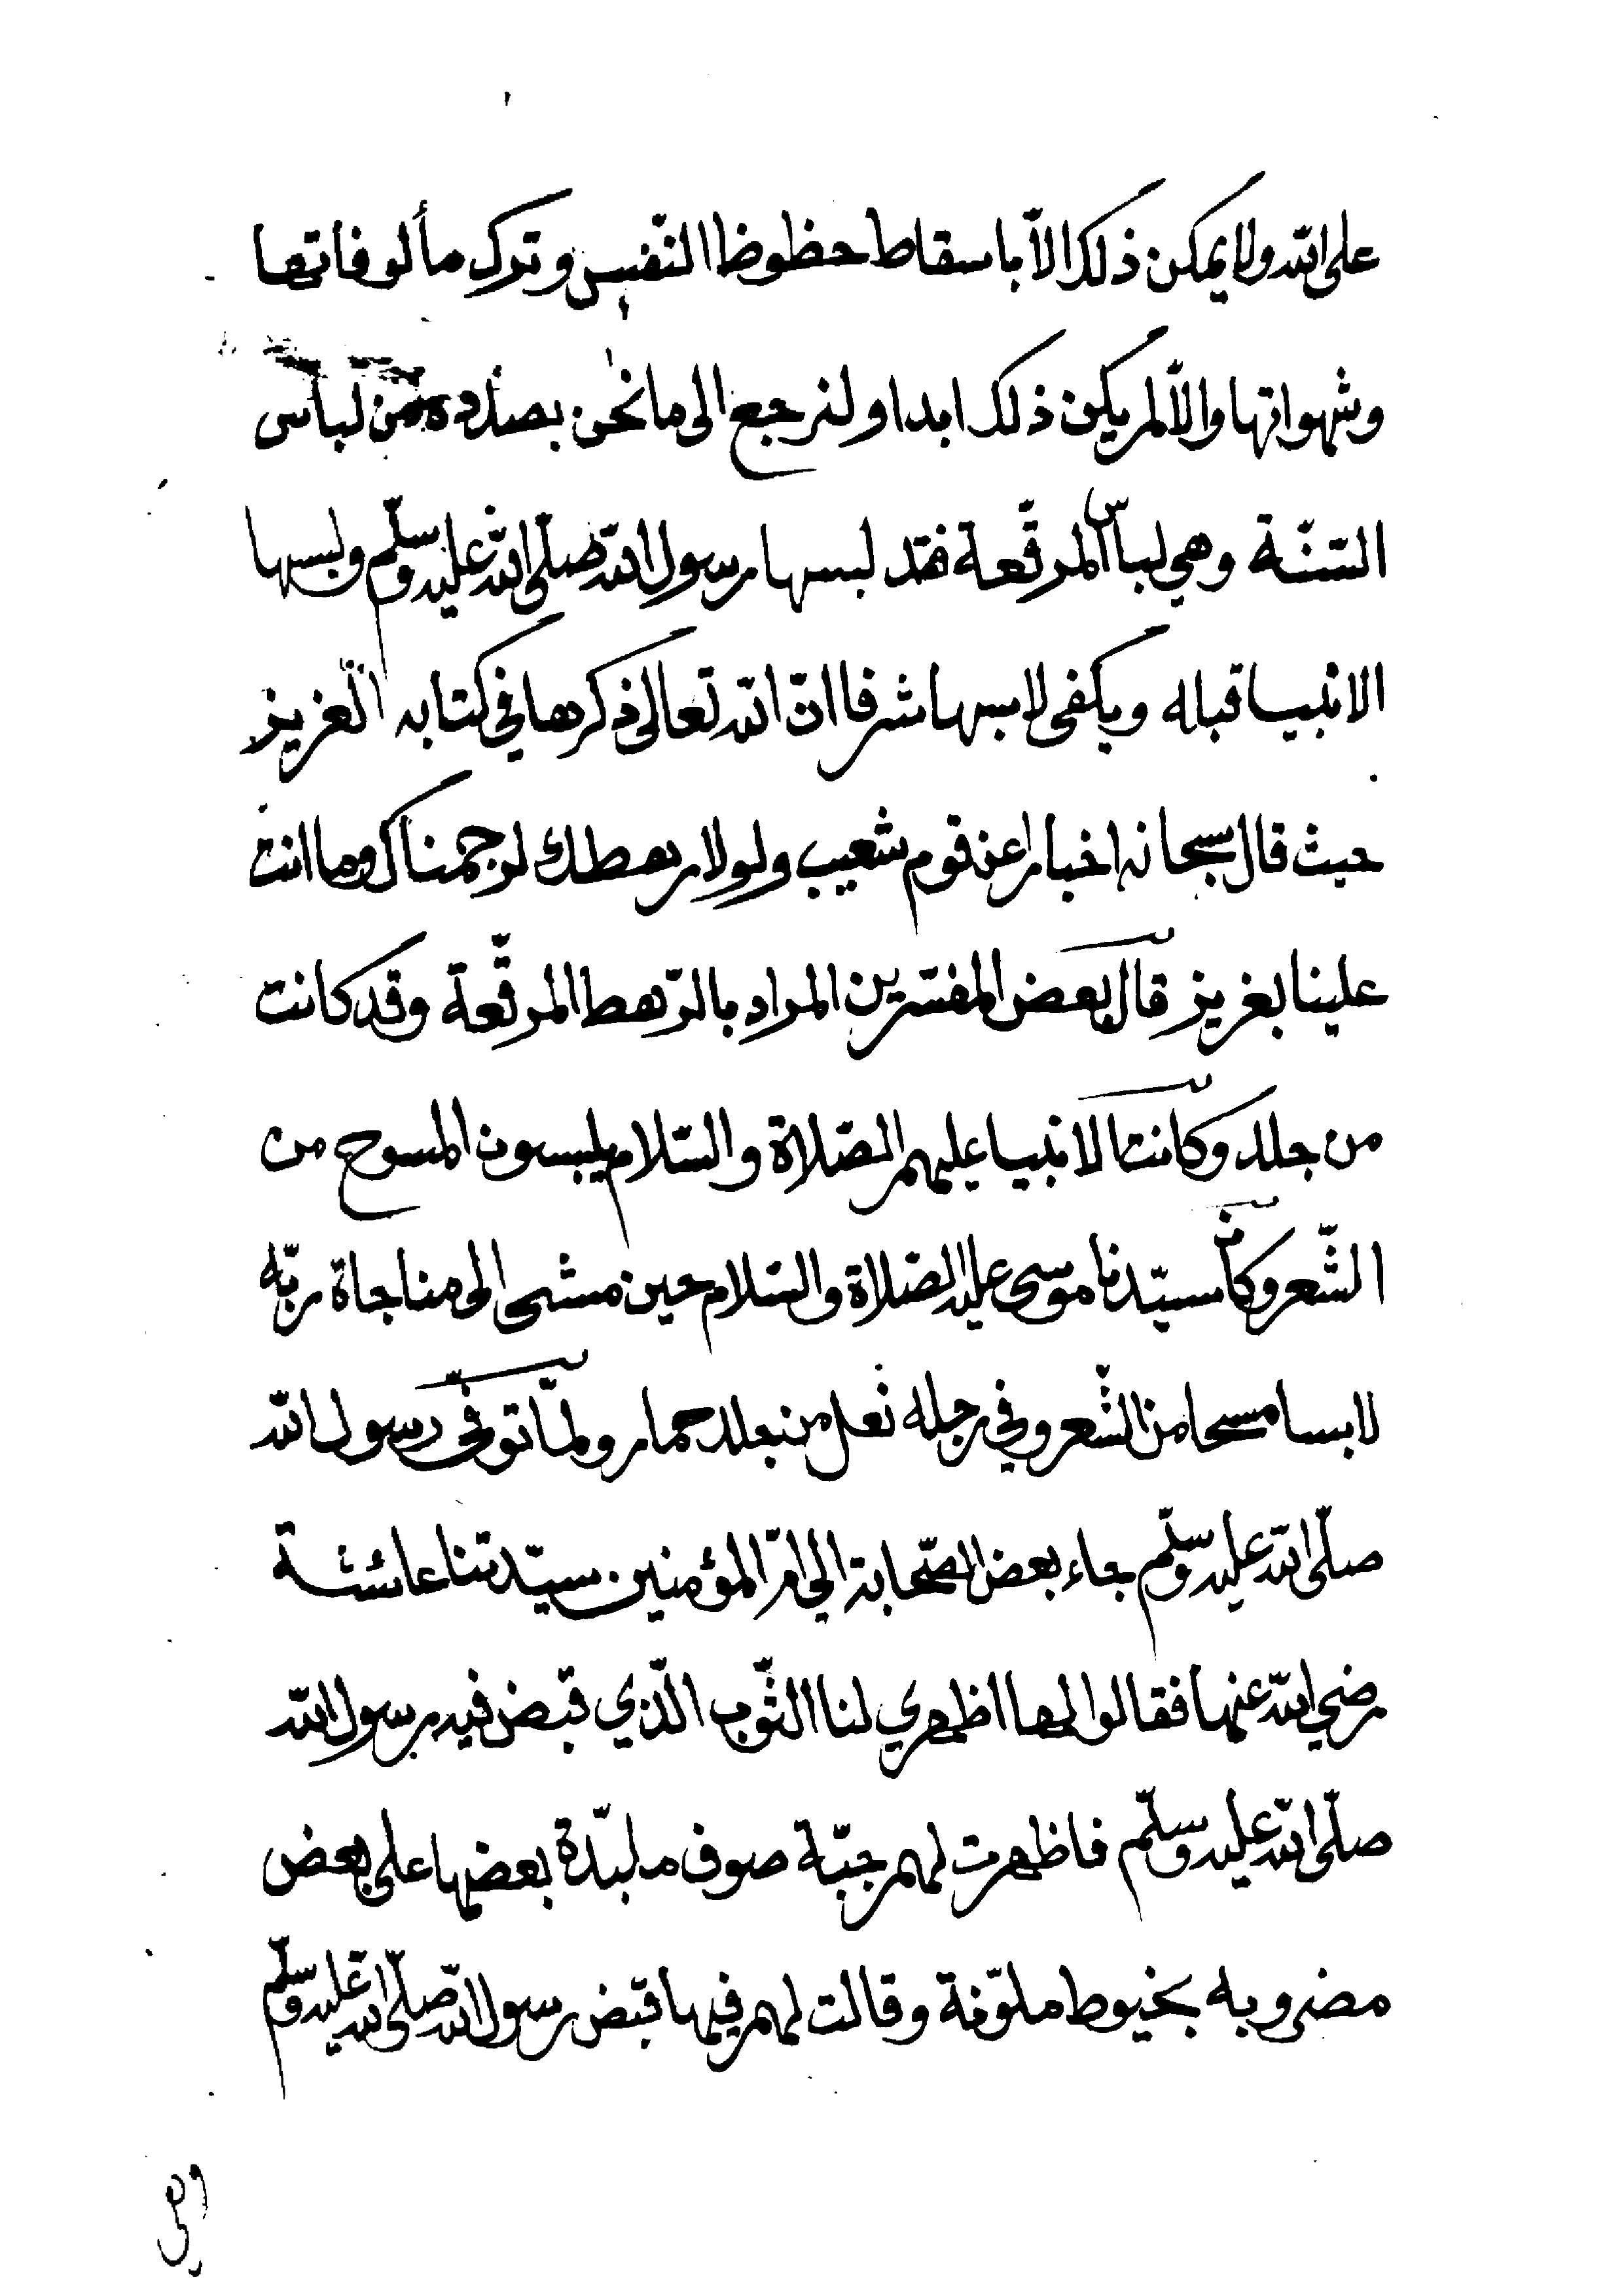 على الله ولا يمكن ذلك الّا باسقاط حظوظ النّفس وترك مألوفاتها
وشهواتها والّا لم يكن ذلك ابدا ولنرجع الى ما نحن بصدده من لباس
السّنّة وهي لباس المرقّعة فقد لبسها رسول الله صلّى الله عليه وسلّم ولبسها
الانبيا قبله ويكفى لابسها شرفا انّ الله تعالى ذكرها في كتابه العزيز
حيث قال سبحانه اخبارا عن قوم شعيب ولولا رهطك لرجمناك وما انت
علينا بعزيز قال بعض المفسّرين المراد بالرّهط المرقّعة وقد كانت
من جلد وكانت الانبيا عليهم الصّلاة والسّلام يلبسون المسوح من
الشّعر وكان سيّدنا موسى عليه الصّلاة والسّلام حين مشى الى مناجاة ربّه
لابسا مسحا من الشّعر وفي رجله نعل من جلد حمار ولمّا توفّى رسول الله
صلّى الله عليه وسلّم جاء بعض الصّحابة الى امّ المؤمنين سيّدتنا عائشة
رضي الله عنها فقالوا لها اظهري لنا الثّوب الّذي قبض فيه رسول الله
صلّى الله عليه وسلّم فاظهرت لهم جبّة صوف ملبّدة بعضها على بعض
مضروبه بخيوط ملوّنة وقالت لهم فيها قبض رسول الله صلّى الله عليه وسلّم
وهي